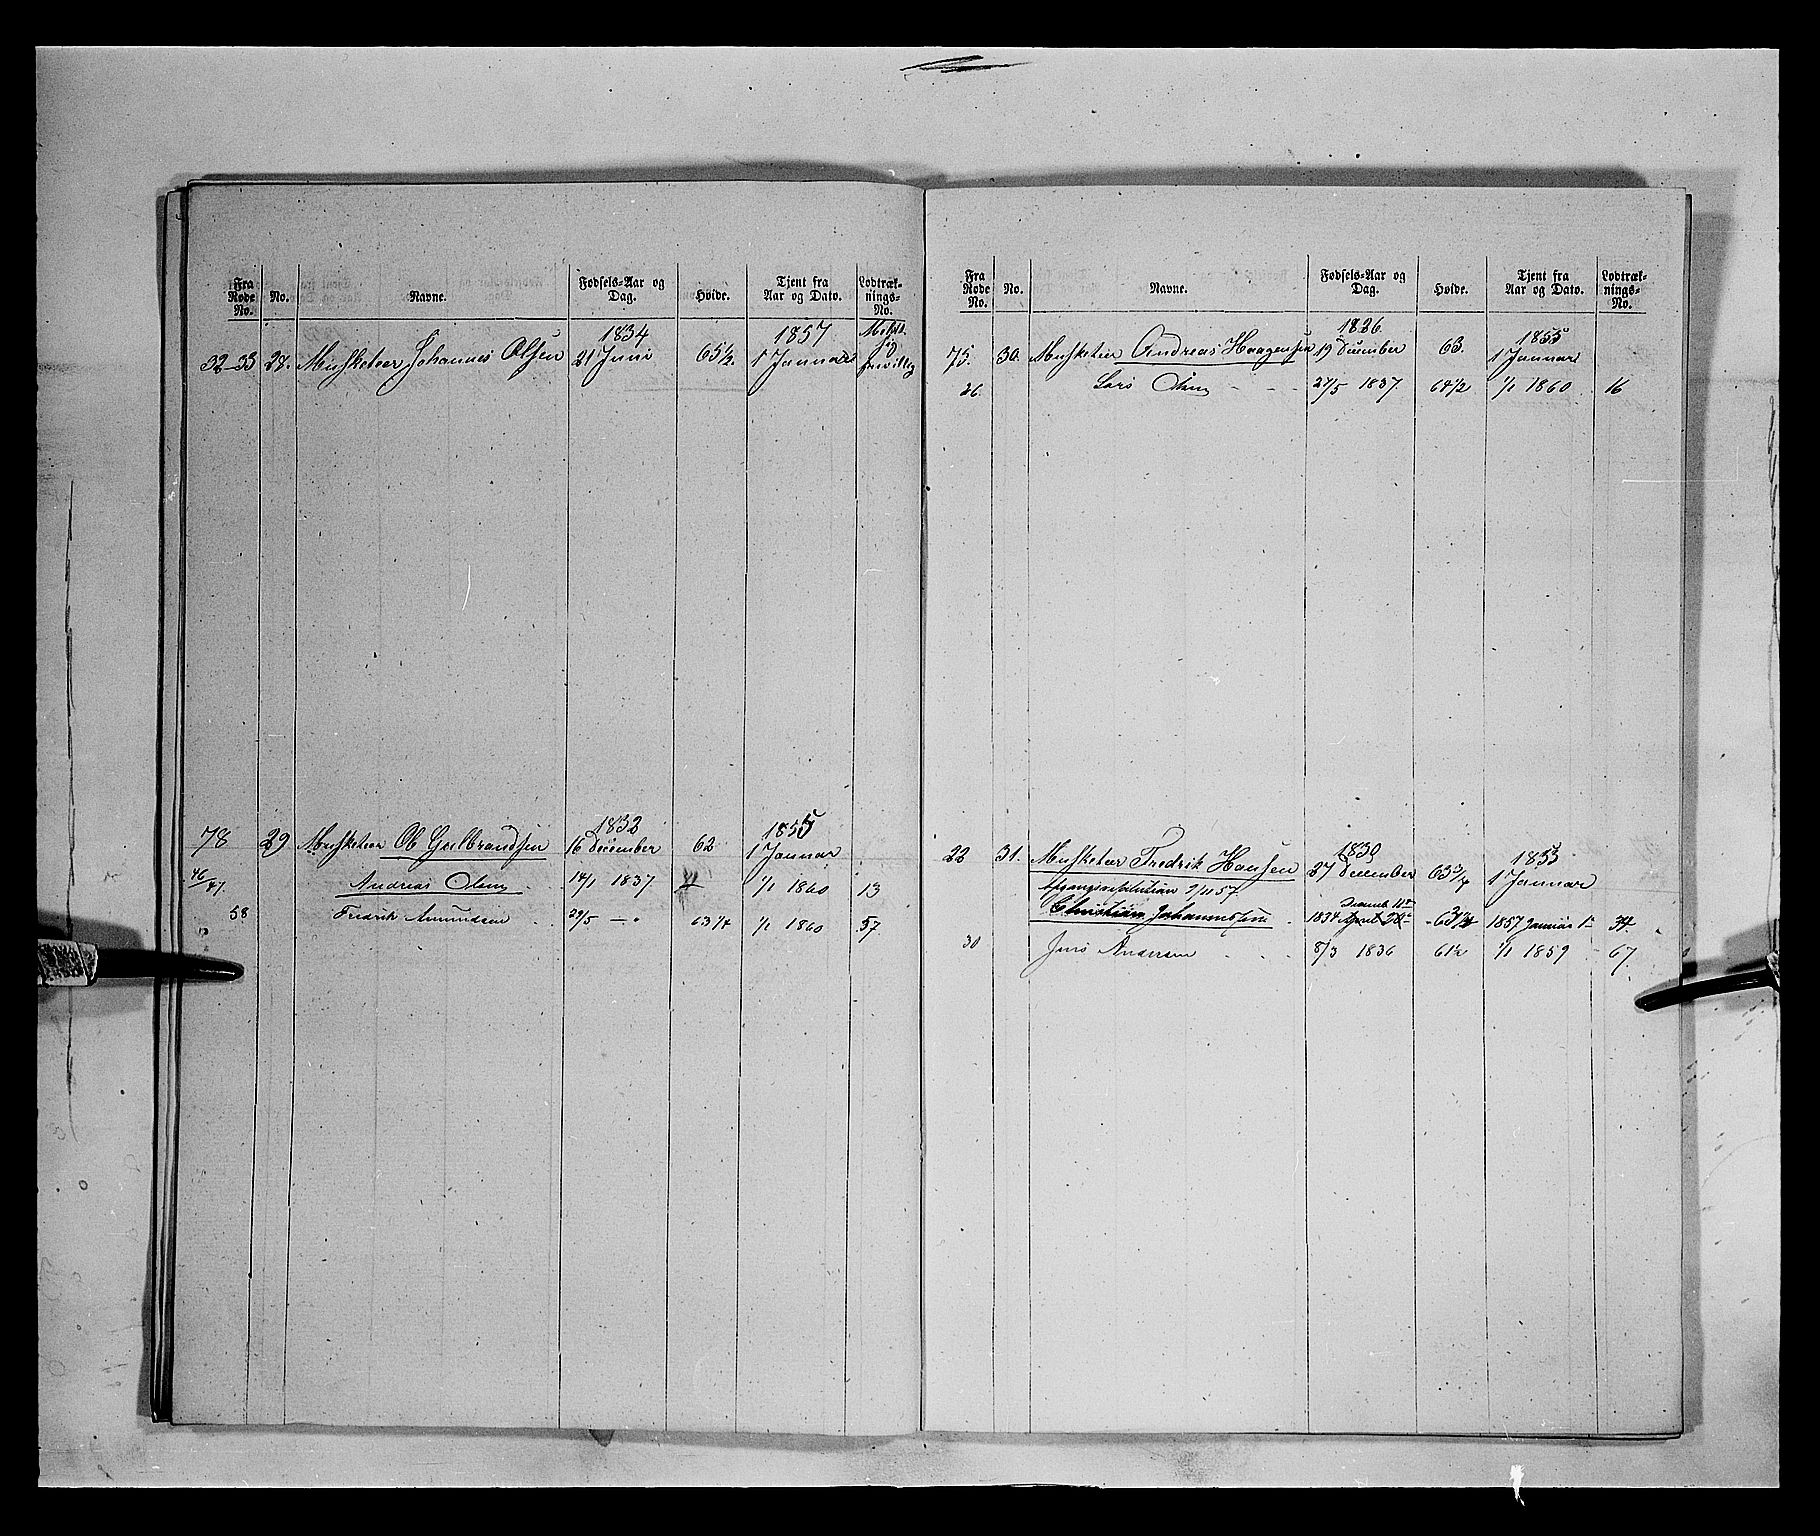 Fra Rode No. No. Navne. Fødsels-Aar og Dag. Höide. Tjent fra Aar og Dato. Lodtræk-nings-No.
1834 1857 Meldt
32-33 28. Musketeer Johannes Olsen 21 Juni 65½. 1 Januar frivillig
1832 1855
78 29 Musketeer Ole Gulbrandsen 16 December 62 1 Januar
46/47 Andreas Olsen 14/1 1837 1/1 1860 13
58 Fredrik Amundsen 29/5 —„— 63¼ 1/1 1860 57
Fra Rode No. No. Navne. Fødsels-Aar og Dag. Höide. Tjent fra Aar og Dato. Lodtræk-nings-No.
1826 1855
75. 30. Musketeer Andreas Haagensen 19 December 63. 1 Januar
26. Lars Olsen 27/5 1837. 64½ 1/1 1860 16
1830 1853
22 31. Musketeer Fredrik Hansen 27 December 63¾ 1 Januar
Afgangsresolution 9/11 57
Christian Johannessen 1834 April 63¼ 1857 Januar 1 34
30 Jens Andersen 8/3 1836 61½ 1/1 1859 67